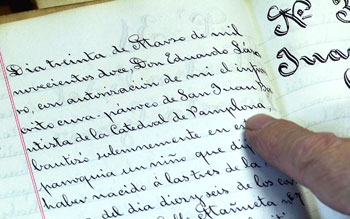 Día treinta de Marzo de mil
novecientos doce, Don Eduardo
no, con autorizacion de mi el infras
crito cura párroco de San Juan Bau
tista de la Catedral de Pamplona,
bautizó solemnemente en esta
parroquia un niño que di
haber nacido á las tres de la
del dia diez y seis de los co
calle Mañueta nº 7
Nº
Jua